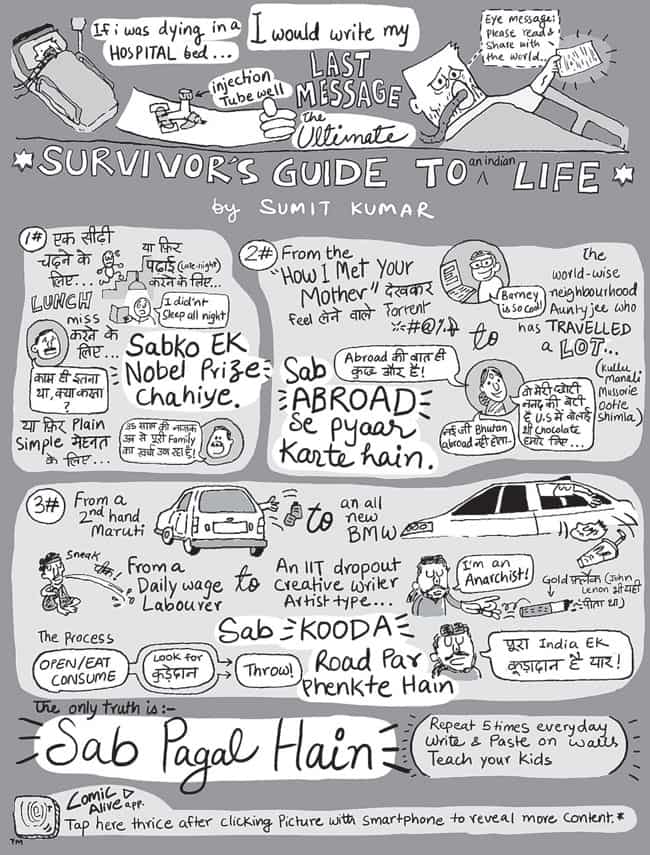 If i was dying in a
HOSPITAL bed...
I would write my
LAST
MESSAGE
the
Ultimate
injection
Tubewell
Eye message:
Please read &
Share with
the world...
SURVIVOR'S GUIDE TO an indian LIFE
by SUMIT KUMAR
1# एक सीढ़ी
चढ़ने के
लिए...
या फ़िर
पढ़ाई (late-night)
करने के लिए...
I didn't
Sleep all night
LUNCH
miss
करने के
लिए...
काम ही इतना
था, क्या करता
?
Sabko EK
Nobel Prize
Chahiye.
या फ़िर Plain
Simple मेहनत
के लिए...
35 साल की नाज़ुक
उम्र से पूरी Family
का खर्चा उठा रहा हूँ!
2# From the
"How I Met Your
Mother" देखकर
feel लेने वाले Torrent
#@!%
to
Barney
is so Cool!
the
world-wise
neighbourhood
Auntyjee who
has TRAVELLED
a LOT...
(kullu
manali
Mussorie
Ootie
Shimla)
Abroad की बात ही
कुछ और है!
Sab
ABROAD
se pyaar
karte hain.
नई जी Bhutan
abroad नहीं होता..
वो मेरी छोटी
ननद की बेटी
है U.S में वो लाई
थी Chocolate
हमारे लिए...
3# From a
2nd hand
Maruti
to
an all
new
BMW
Sneak
From a
Daily wage
Labourer
to
An IIT dropout
Creative writer
Artist type...
I'm an
Anarchist!
Gold फ़्लेक (John
Lenon भी यही
पीता था)
The Process
OPEN/EAT
CONSUME
Look for
कूड़ेदान
Throw!
Sab KOODA
Road Par
Phenkte Hain
पूरा India EK
कूड़ादान है यार!
The only truth is:-
Sab Pagal Hain
Repeat 5 times everyday
Write & Paste on walls
Teach your Kids
Comic
Alive app.
Tap here thrice after clicking Picture with smartphone to reveal more content.*
TM